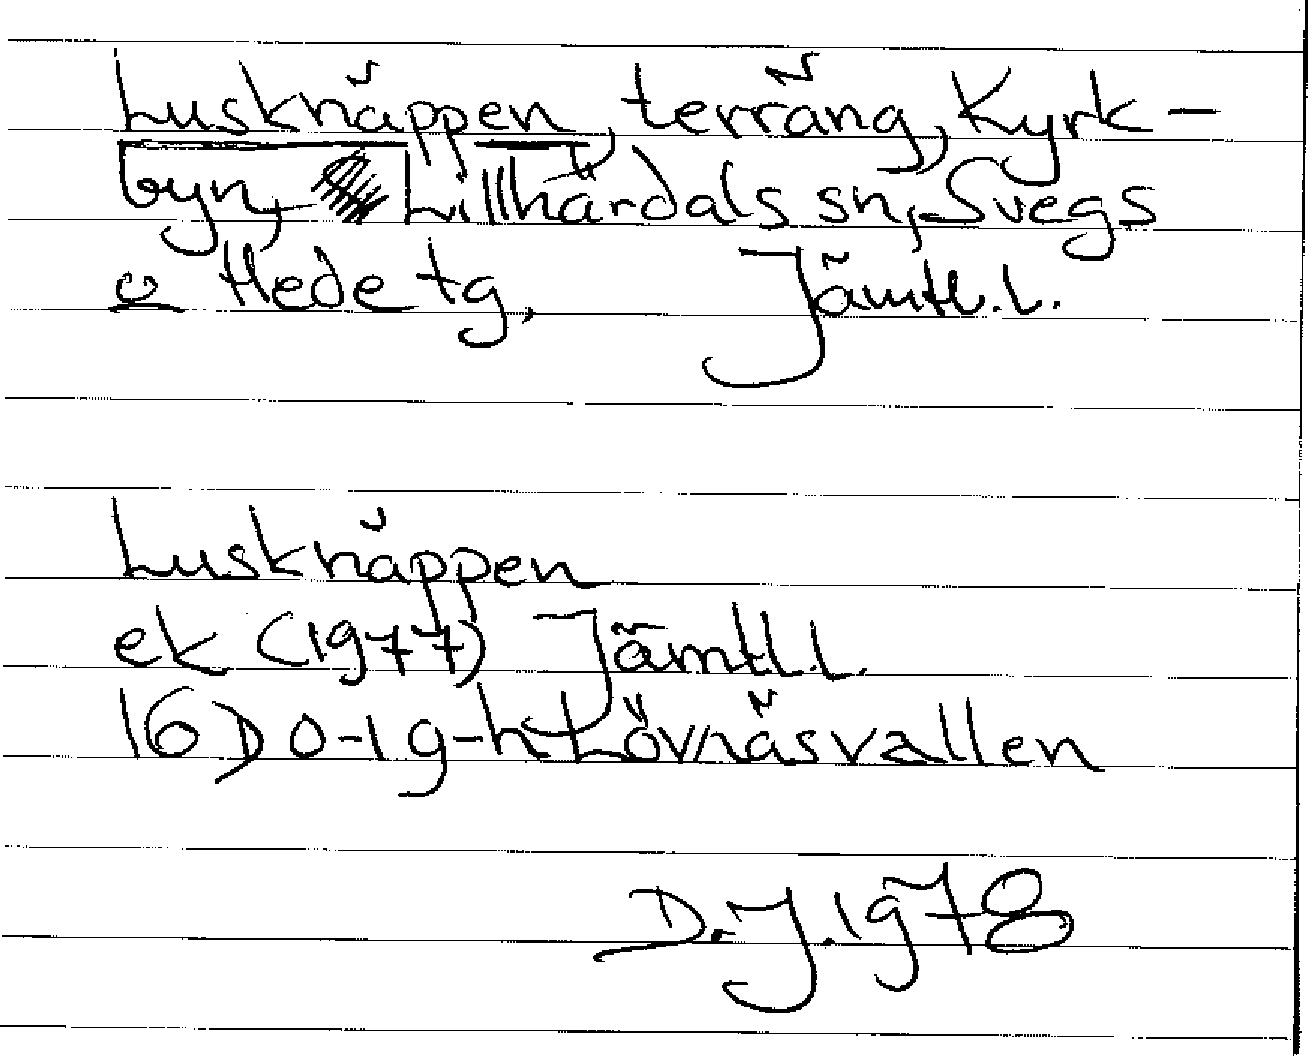 Lusknäppen, terräng, Kyrk-
byn, Lillhärdals sn, Svegs
o Hede tg, Jämtl.l.
Lusknäppen
ek (1977) Jämtl.l.
16D 0-1 g-h Lövnäsvallen
D.J. 1978